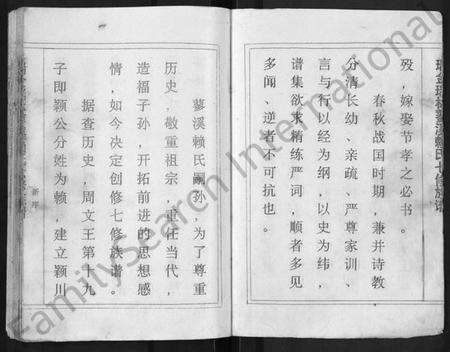 殁，嫁娶节孝之必书。
春秋战国时期，兼并诗教
分清长幼、亲疏、严尊家训、
言与行以经为纲，以史为纬，
谱集欲求精练严词，顺者多见
多闻、逆者不可抗也。
蓼溪赖氏嗣孙，为了尊重
历史，敬重祖宗，重任当代，
造福子孙，开拓前进的思想感
情，如今决定创修七修族谱。
据查历史，周文王第十九
子即颖公分姓为赖，建立颖川
新序
FamilySearch International